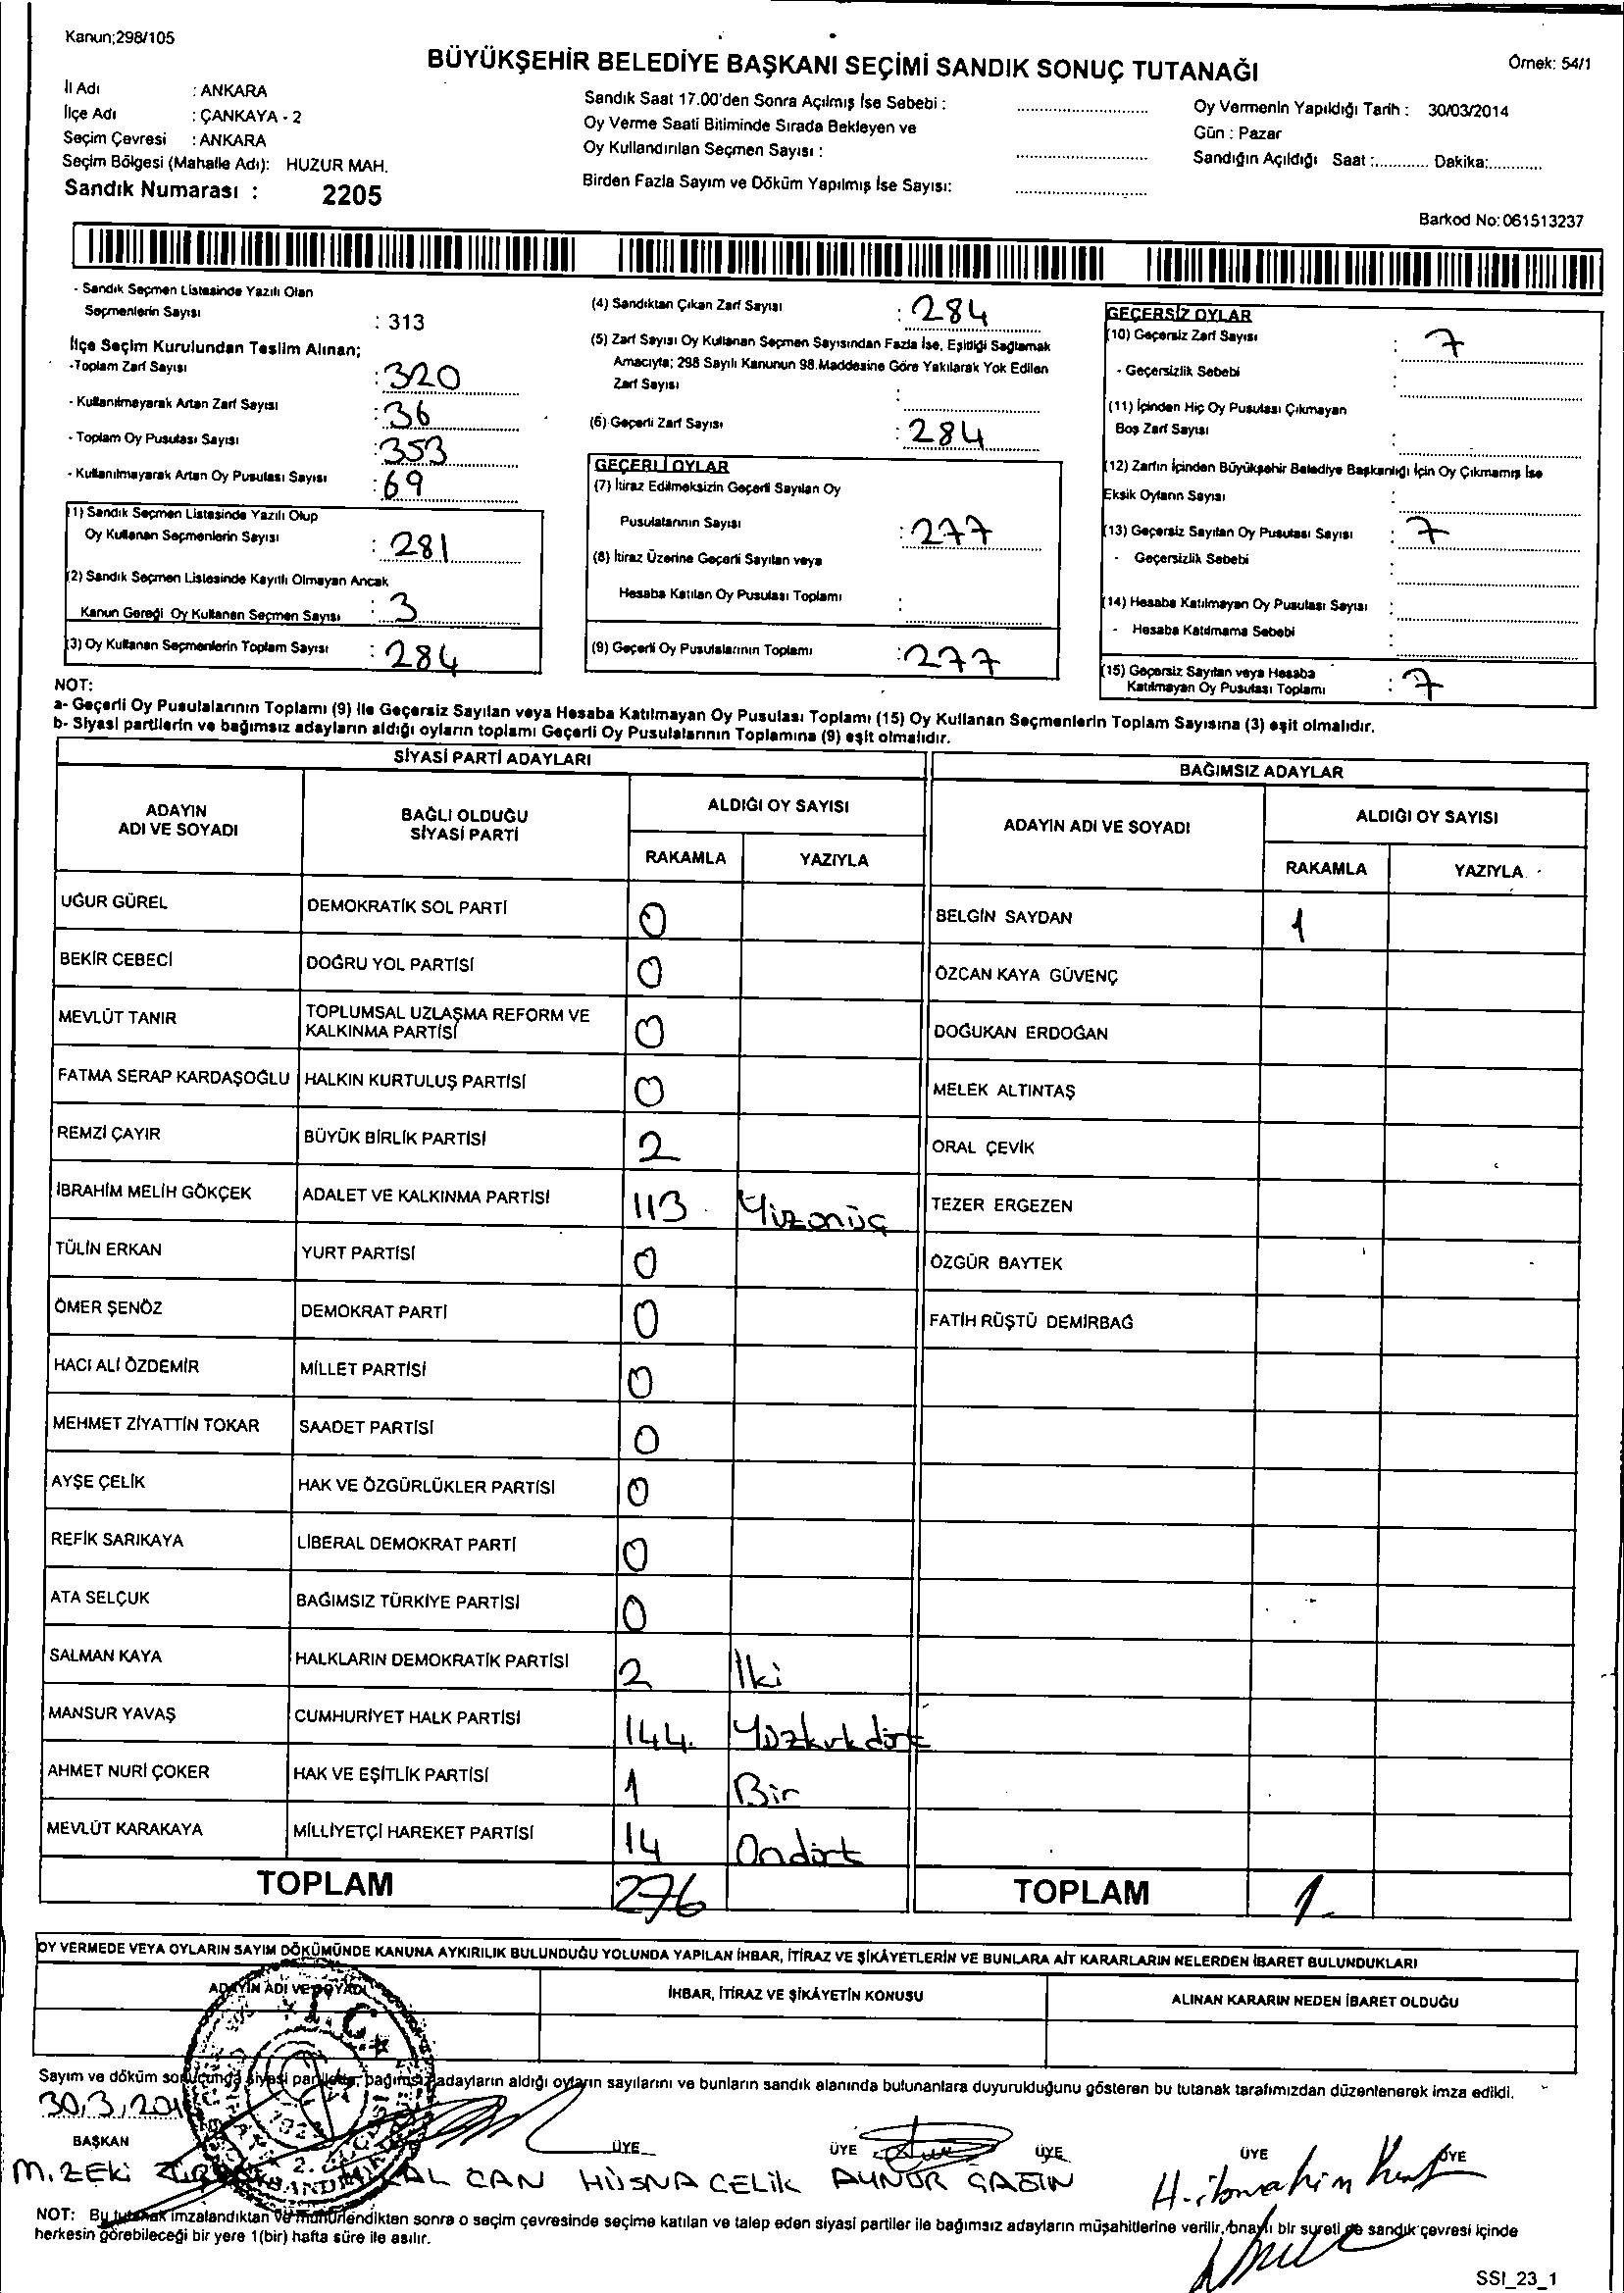 Kanun;298/105
BÜYÜKŞEHİR BELEDİYE BAŞKANI SEÇİMİ SANDIK SONUÇ TUTANAĞI
Örnek: 54/1
İl Adı : ANKARA
İlçe Adı : ÇANKAYA - 2
Seçim Çevresi : ANKARA
Seçim Bölgesi (Mahalle Adı): HUZUR MAH.
Sandık Numarası : 2205
Sandık Saat 17.00'den Sonra Açılmış İse Sebebi :
Oy Verme Saati Bitiminde Sırada Bekleyen ve
Oy Kullandırılan Seçmen Sayısı :
Birden Fazla Sayım ve Döküm Yapılmış İse Sayısı:
Oy Vermenin Yapıldığı Tarih : 30/03/2014
Gün : Pazar
Sandığın Açıldığı Saat :............ Dakika:............
Barkod No: 061513237
- Sandık Seçmen Listesinde Yazılı Olan
Seçmenlerin Sayısı : 313
İlçe Seçim Kurulundan Teslim Alınan;
-Toplam Zarf Sayısı : 320
- Kullanılmayarak Artan Zarf Sayısı : 36
- Toplam Oy Pusulası Sayısı : 353
- Kullanılmayarak Artan Oy Pusulası Sayısı : 69
(1) Sandık Seçmen Listesinde Yazılı Olup
Oy Kullanan Seçmenlerin Sayısı : 281
(2) Sandık Seçmen Listesinde Kayıtlı Olmayan Ancak
Kanun Gereği Oy Kullanan Seçmen Sayısı : 3
(3) Oy Kullanan Seçmenlerin Toplam Sayısı : 284
(4) Sandıktan Çıkan Zarf Sayısı : 284
(5) Zarf Sayısı Oy Kullanan Seçmen Sayısından Fazla İse, Eşitliği Sağlamak
Amacıyla; 298 Sayılı Kanunun 98.Maddesine Göre Yakılarak Yok Edilen
Zarf Sayısı :
(6) Geçerli Zarf Sayısı : 284
GEÇERLİ OYLAR
(7) İtiraz Edilmeksizin Geçerli Sayılan Oy
Pusulalarının Sayısı : 277
(8) İtiraz Üzerine Geçerli Sayılan veya
Hesaba Katılan Oy Pusulası Toplamı :
(9) Geçerli Oy Pusulalarının Toplamı : 277
GEÇERSİZ OYLAR
(10) Geçersiz Zarf Sayısı : 7
- Geçersizlik Sebebi :
(11) İçinden Hiç Oy Pusulası Çıkmayan
Boş Zarf Sayısı :
(12) Zarfın İçinden Büyükşehir Belediye Başkanlığı İçin Oy Çıkmamış İse
Eksik Oyların Sayısı :
(13) Geçersiz Sayılan Oy Pusulası Sayısı : 7
- Geçersizlik Sebebi :
(14) Hesaba Katılmayan Oy Pusulası Sayısı :
- Hesaba Katılmama Sebebi :
(15) Geçersiz Sayılan veya Hesaba
Katılmayan Oy Pusulası Toplamı : 7
NOT:
a- Geçerli Oy Pusulalarının Toplamı (9) ile Geçersiz Sayılan veya Hesaba Katılmayan Oy Pusulası Toplamı (15) Oy Kullanan Seçmenlerin Toplam Sayısına (3) eşit olmalıdır.
b- Siyasi partilerin ve bağımsız adayların aldığı oyların toplamı Geçerli Oy Pusulalarının Toplamına (9) eşit olmalıdır.
SİYASİ PARTİ ADAYLARI
BAĞIMSIZ ADAYLAR
ADAYIN ADI VE SOYADI
BAĞLI OLDUĞU SİYASİ PARTİ
ALDIĞI OY SAYISI
RAKAMLA YAZIYLA
ADAYIN ADI VE SOYADI
ALDIĞI OY SAYISI
RAKAMLA YAZIYLA
UĞUR GÜREL DEMOKRATİK SOL PARTİ 0 BELGİN SAYDAN 1
BEKİR CEBECİ DOĞRU YOL PARTİSİ 0 ÖZCAN KAYA GÜVENÇ
MEVLÜT TANIR TOPLUMSAL UZLAŞMA REFORM VE KALKINMA PARTİSİ 0 DOĞUKAN ERDOĞAN
FATMA SERAP KARDAŞOĞLU HALKIN KURTULUŞ PARTİSİ 0 MELEK ALTINTAŞ
REMZİ ÇAYIR BÜYÜK BİRLİK PARTİSİ 2 ORAL ÇEVİK
İBRAHİM MELİH GÖKÇEK ADALET VE KALKINMA PARTİSİ 113 Yüzonüç TEZER ERGEZEN
TÜLİN ERKAN YURT PARTİSİ 0 ÖZGÜR BAYTEK
ÖMER ŞENÖZ DEMOKRAT PARTİ 0 FATİH RÜŞTÜ DEMİRBAĞ
HACI ALİ ÖZDEMİR MİLLET PARTİSİ 0
MEHMET ZİYATTİN TOKAR SAADET PARTİSİ 0
AYŞE ÇELİK HAK VE ÖZGÜRLÜKLER PARTİSİ 0
REFİK SARIKAYA LİBERAL DEMOKRAT PARTİ 0
ATA SELÇUK BAĞIMSIZ TÜRKİYE PARTİSİ 0
SALMAN KAYA HALKLARIN DEMOKRATİK PARTİSİ 2 İki
MANSUR YAVAŞ CUMHURİYET HALK PARTİSİ 144. Yüzkırkdört
AHMET NURİ ÇOKER HAK VE EŞİTLİK PARTİSİ 1 Bir
MEVLÜT KARAKAYA MİLLİYETÇİ HAREKET PARTİSİ 14 Ondört
TOPLAM 276 TOPLAM 1.
OY VERMEDE VEYA OYLARIN SAYIM DÖKÜMÜNDE KANUNA AYKIRILIK BULUNDUĞU YOLUNDA YAPILAN İHBAR, İTİRAZ VE ŞİKÂYETLERİN VE BUNLARA AİT KARARLARIN NELERDEN İBARET BULUNDUKLARI
ADAYIN ADI VE SOYADI İHBAR, İTİRAZ VE ŞİKÂYETİN KONUSU ALINAN KARARIN NEDEN İBARET OLDUĞU
Sayım ve döküm sonucunda siyasi partilerin, bağımsız adayların aldığı oyların sayılarını ve bunların sandık alanında bulunanlara duyurulduğunu gösteren bu tutanak tarafımızdan düzenlenerek imza edildi.
BAŞKAN ÜYE ÜYE ÜYE ÜYE ÜYE
M. ZEKİ CAN HÜSNA ÇELİK AYNUR H. İbrahim
NOT: Bu tutanak imzalandıktan ve mühürlendikten sonra o seçim çevresinde seçime katılan ve talep eden siyasi partiler ile bağımsız adayların müşahitlerine verilir, onaylı bir sureti de sandık çevresi içinde
herkesin görebileceği bir yere 1(bir) hafta süre ile asılır.
SSI_23_1